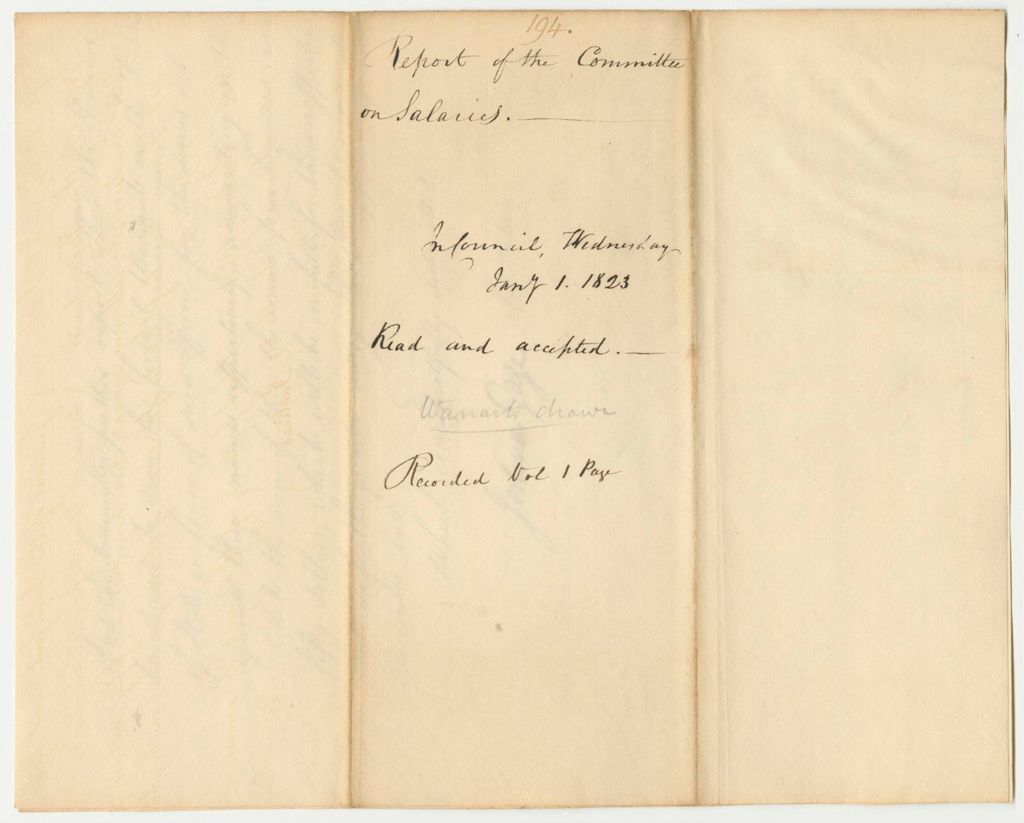 194.
Report of the Committee
on Salaries.
In Council, Wednesday
Jany 1. 1823
Read and accepted.
Warrants drawn
Recorded Vol 1 Page